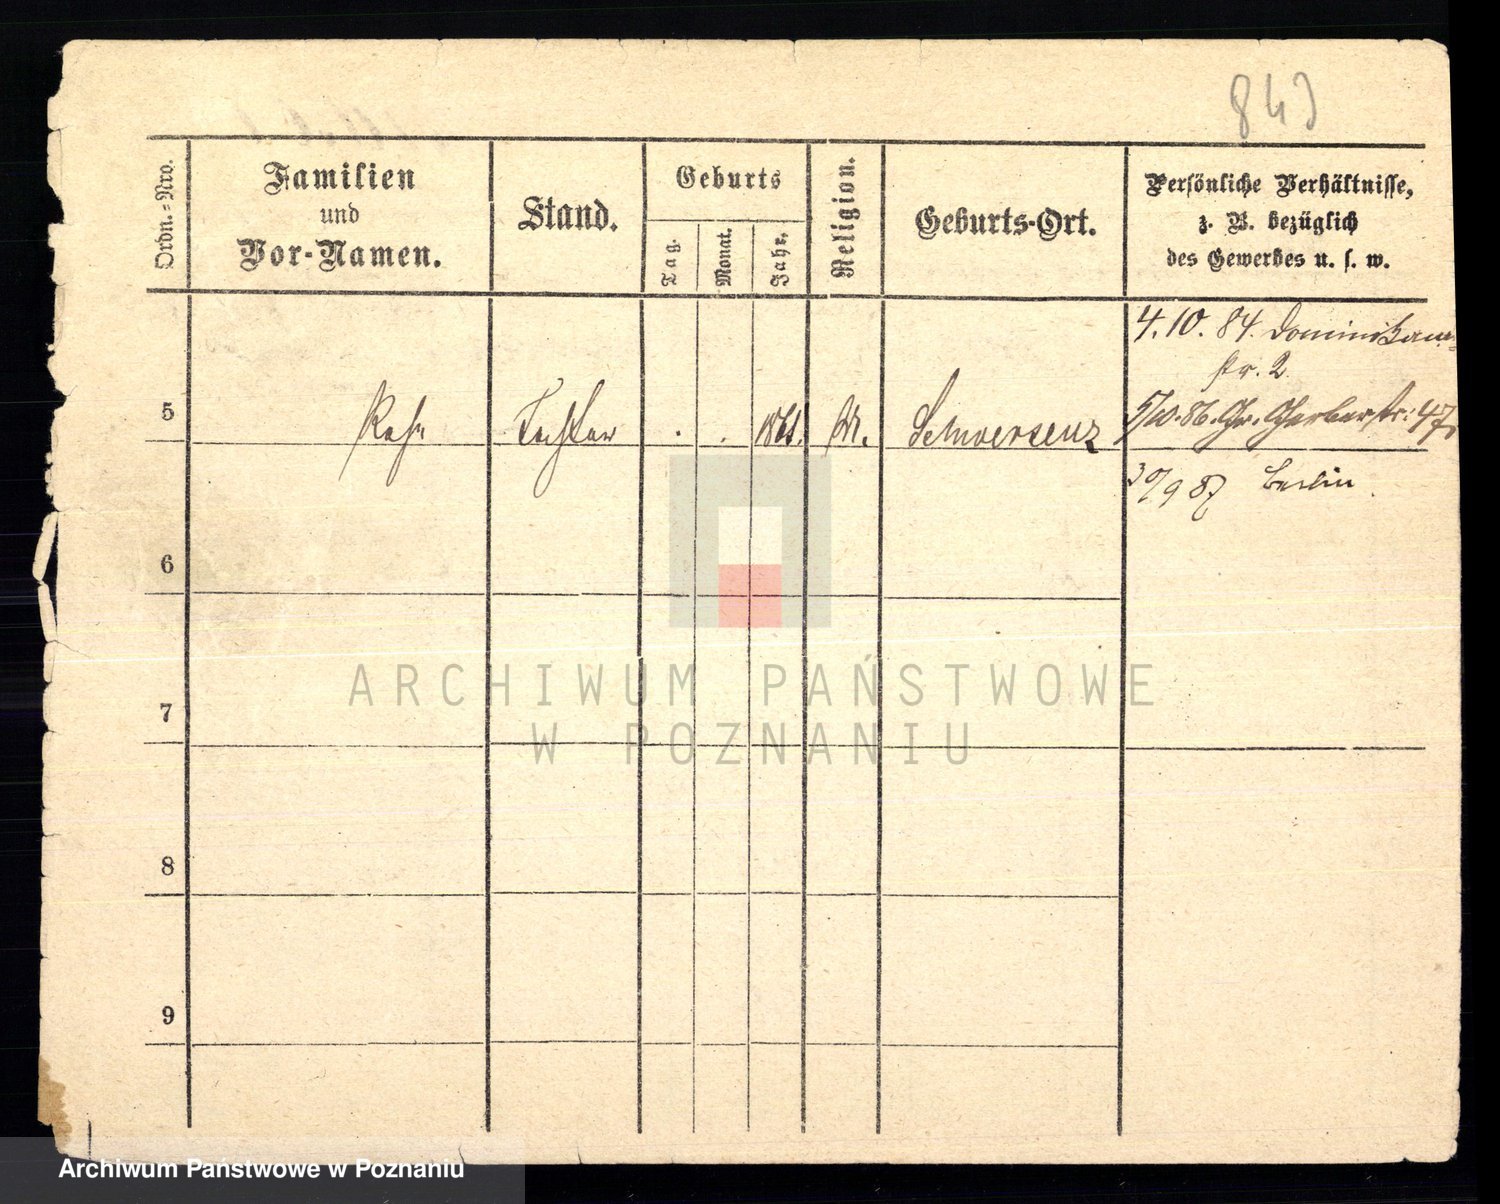 843
Ordn.-Nro.
Familien
und
Vor-Namen.
Stand.
Geburts
Tag.
Monat.
Jahr.
Religion.
Geburts-Ort.
Persönliche Verhältnisse,
z. B. bezüglich
des Gewerbes u. s. w.
4.10.84. Dominikaner=
str. 2
5 Tochter . . 1861. M. Schwersenz 5/10.86. Gr. Gerberstr: 47.
30/9 87 Berlin.
6
7
8
9
ARCHIWUM PAŃSTWOWE
W POZNANIU
Archiwum Państwowe w Poznaniu